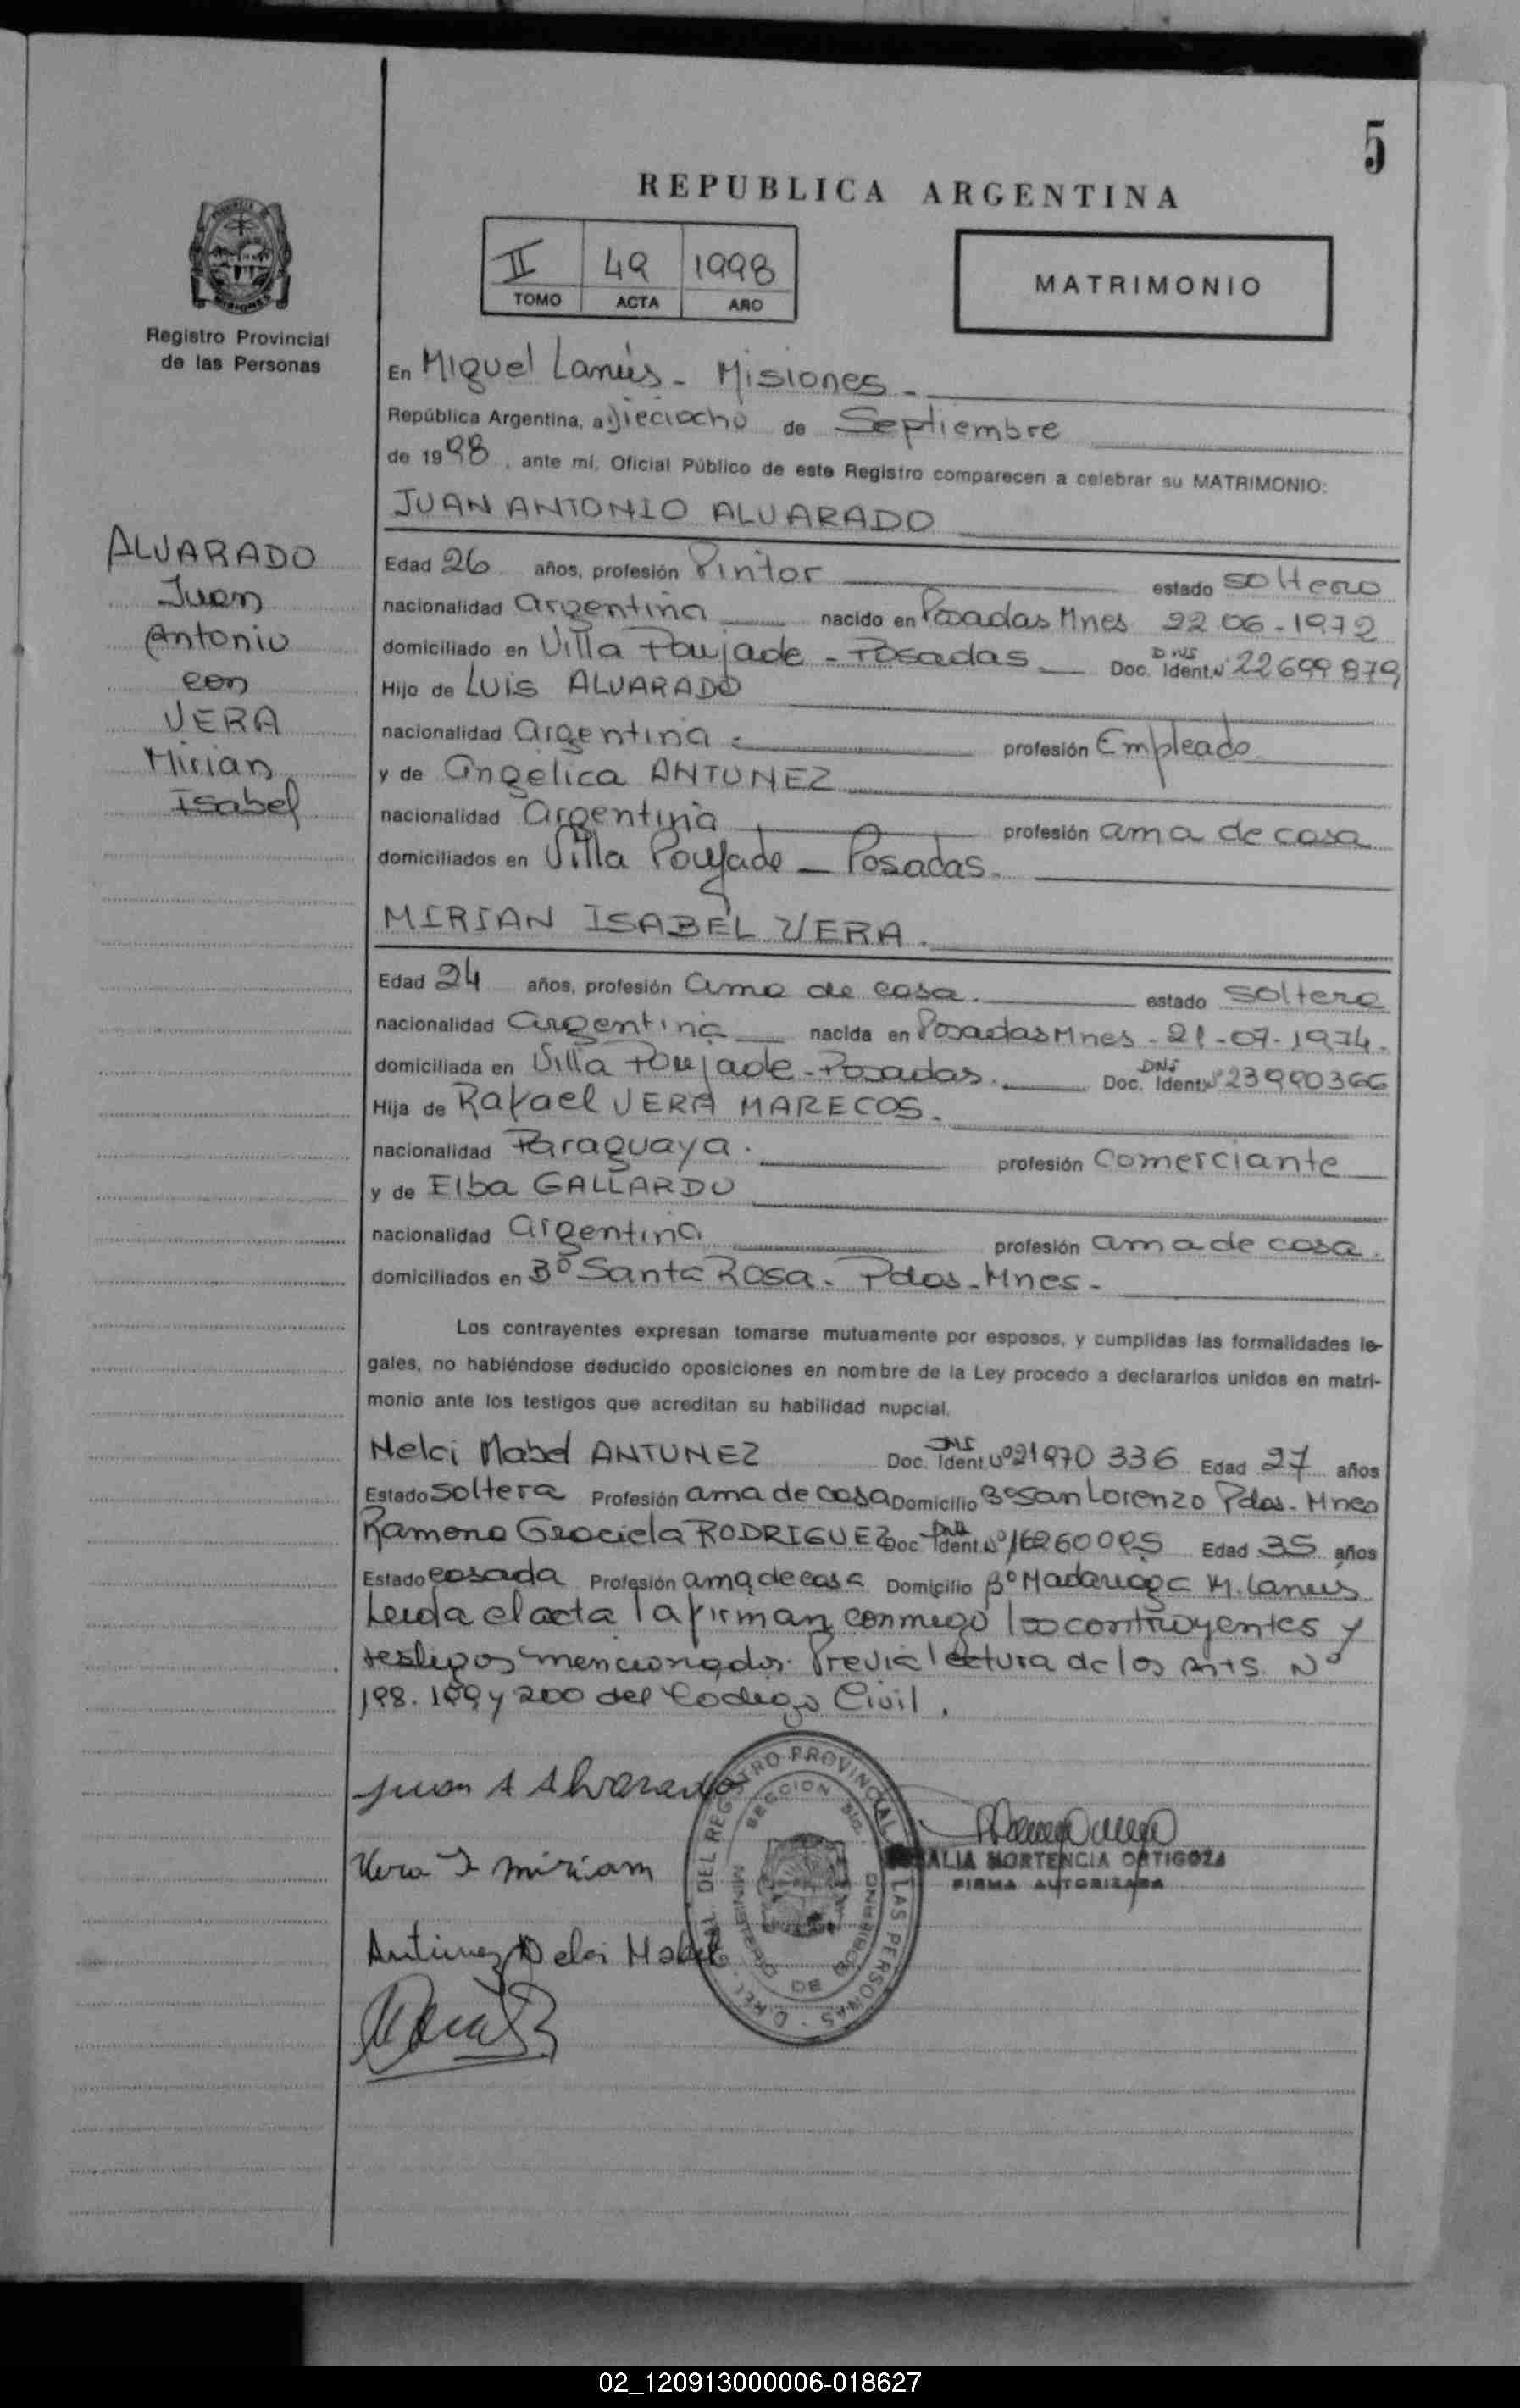 5
REPUBLICA ARGENTINA
II 49 1998
TOMO ACTA AÑO
MATRIMONIO
Registro Provincial
de las Personas
En Miguel Lanús - Misiones -
República Argentina, a Dieciocho de Septiembre
de 1998, ante mí, Oficial Público de este Registro comparecen a celebrar su MATRIMONIO:
JUAN ANTONIO ALVARADO
ALVARADO
Juan
Antonio
con
VERA
Mirian
Isabel
Edad 26 años, profesión Pintor estado soltero
nacionalidad argentina nacido en Posadas Mnes 22 06-1972
domiciliado en Villa Poujade - Posadas. Doc. Ident. DNI Nº 22699879
Hijo de LUIS ALVARADO
nacionalidad argentina - profesión Empleado
y de angelica ANTUNEZ
nacionalidad argentina profesión ama de casa
domiciliados en Villa Poujade - Posadas.
MIRIAN ISABEL VERA.
Edad 24 años, profesión ama de casa. estado soltera
nacionalidad argentina nacida en Posadas Mnes - 21-07-1974.
domiciliada en Villa Poujade - Posadas. Doc. Ident. DNI Nº 23990366
Hija de Rafael VERA MARECOS.
nacionalidad Paraguaya. profesión Comerciante
y de Elba GALLARDO
nacionalidad argentina profesión ama de casa.
domiciliados en Bº Santa Rosa - Pdas - Mnes -
Los contrayentes expresan tomarse mutuamente por esposos, y cumplidas las formalidades le-
gales, no habiéndose deducido oposiciones en nombre de la Ley procedo a declararlos unidos en matri-
monio ante los testigos que acreditan su habilidad nupcial.
Nelci Mabel ANTUNEZ Doc. Ident. DNI Nº 21970 336 Edad 27 años
Estado Soltera Profesión ama de casa Domicilio Bº San Lorenzo Pdas - Mnes
Ramona Graciela RODRIGUEZ Doc. Ident. DNI Nº 16260095 Edad 35 años
Estado casada Profesión ama de casa Domicilio Bº Madariaga M. Lanus
Leida el acta la firman conmigo los contrayentes y
testigos mencionados. Previa lectura de los Arts. Nº
198. 199 y 200 del Codigo Civil.
Juan A Alvarado
Vera I miriam
Antunez Nelci Mabel
DEL REGISTRO PROVINCIAL LAS PERSONAS
SECCION
MINISTERIO DE GOBIERNO
ALIA HORTENCIA ORTIGOZA
FIRMA AUTORIZADA
02_120913000006-018627